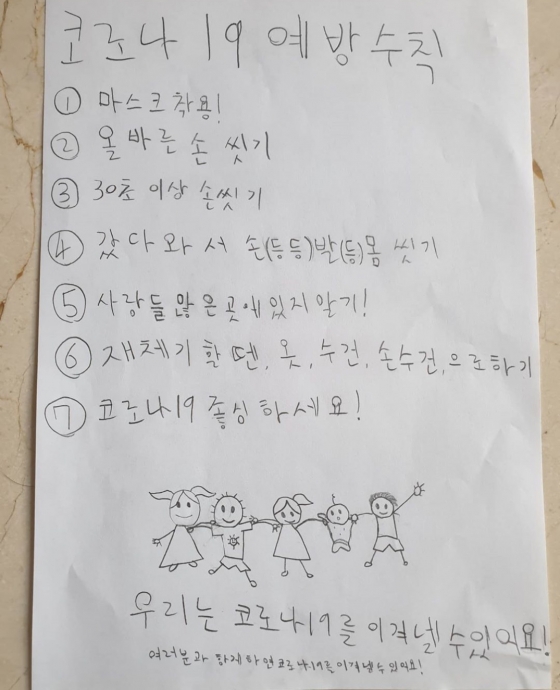 코로나 19 예방수칙
① 마스크착용!
② 올바른 손 씻기
③ 30초 이상 손씻기
④ 갔다와서 손(등등)발(등)몸 씻기
⑤ 사람들 많은곳에 있지 말기!
⑥ 재체기 할 땐, 옷, 수건, 손수건,으로하기
⑦ 코로나19 좋심 하세요!
우리는 코로나19를 이겨넬 수있어요!
여러분과 함게하면 코로나19를 이겨냏수 있어요!